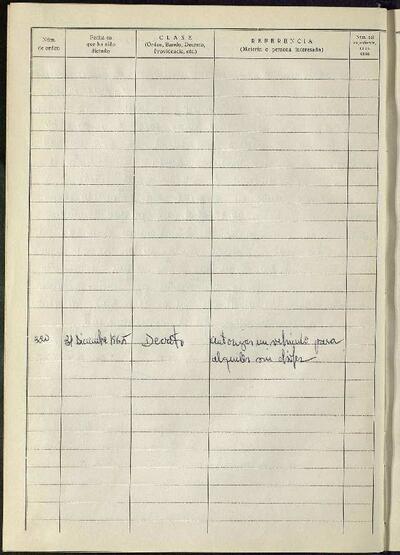 Núm. de orden
Fecha en que ha sido dictado
CLASE
(Orden, Bando, Decreto, Providencia, etc.)
REFERENCIA
(Materia o persona interesada)
Núm. del expediente
320 31 Diciembre 1965 Decreto autorizar un vehiculo para
alquiler sin chófer